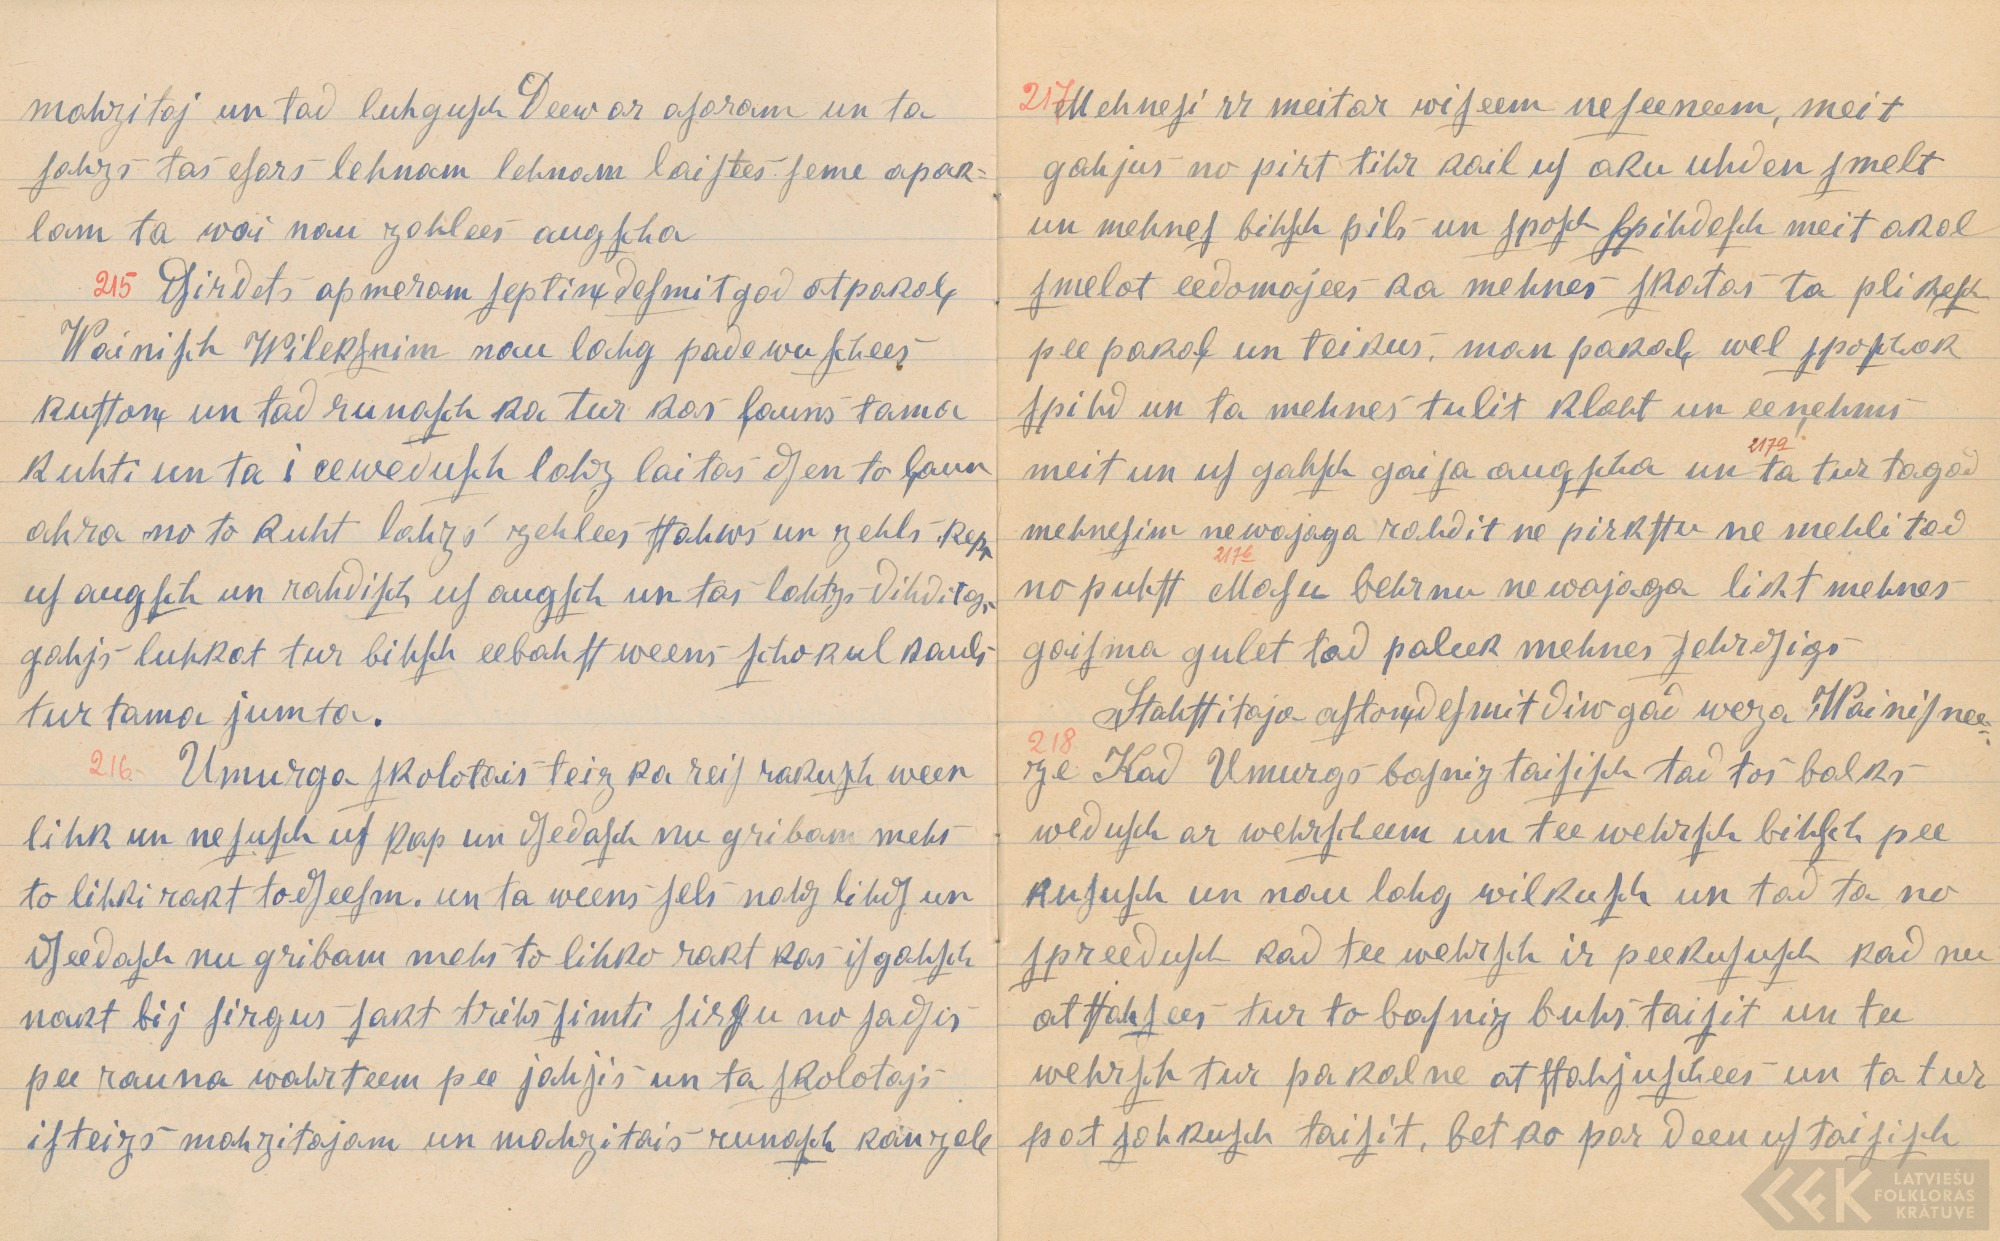 mahzitaj un tad luhgusch Deew ar asaram un ta
sahzs tas esars lehnam lehnam laistees seme apak=
lam ta wai nau zehlees augscha
215 Dsirdets apmeram septiņdesmit gad atpakaļ
Wainisch Wileksnim nau lahg padewuschees
kustoņ un tad runasch ka tur kas ļauns tama
kuhti un ta i eewedusch lahz lai tas dsen to ļaun
ahra no to kuht lahzs zehlees stahws un zehls ķepa
us augsch un rahdisch us augsch un tas lahtzs dihditajs
gahjs luhkot tur bihsch eebahst weens schokul kauls
tur tama jumta.
216. Umurga skolotais teiz ka reis rakusch ween
lihk un nesusch us kap un dsedasch nu gribam mehs
to lihki rakt to dseesm. un ta weens sels nahz lihds un
dseedasch nu gribam mehs to lihko rakt kas isgahsch
nakt bij sirgus sakt trihssimti sirgu no sadsis
pee rauna wahrteem pee jahjis un ta skolotajs
isteizs mahzitajam un mahzitais runasch kanzele
217 Mehnesi ir meitar wiseem neseeneem, meit
gahjus no pirt tihr kail us aku uhden smelt
un mehnes bihsch pils un sposch spihdesch meit akal
smelot eedomajees ka mehnes skatas ta plikzesch
pee pakaļ un teikus, man pakaļ wel sposchak
spihd un ta mehnes tulit klaht un eeņehms
meit un us gahsch gaisa augscha un 217a ta tur tagad
mehnesim newajaga rahdit ne pirkstu ne mehli tad
no puhst 217b Masu behrnu newajaga likt mehnes
gaisma gulet tad paleek mehnes sehrdsigs
Stahstitaja astoņdesmit diw gad weza Wainisnee=
218 ze Kad Umurgs basniz taisisch tad tos balks
wedusch ar wehrscheem un tee wehrsch bihsch pee
kususch un nau lahg wilkusch un tad ta no
spreedusch kad tee wehrsch ir peekususch kad nu
atstahsees tur to basniz buhs taisit un tee
wehrsch tur pakalne atstahjuschees un ta tur
pat sahkusch taisit, bet ko par deen ustaisisch
LATVIEŠU
FOLKLORAS
KRĀTUVE